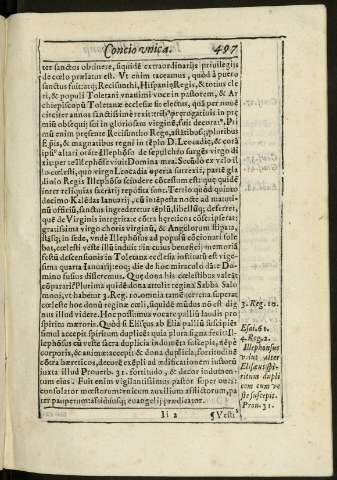 Concio vnica. 497
ter sanctos obtinere, siquidē extraordinarijs priuilegijs
de cœlo prælatus est. Vt enim taceamus, quòd à puero
sanctus fuerit; Recisunthi, Hispaniæ Regis, & totius cle
ri, & populi Toletani maximi voce in pastorem, & Ar
chiepiscopū Toletanæ ecclesiæ sic electus, quà per nouē
circiter annos sanctissimè
obsequij sui in gloriosam virginē, fuit decorat⁹. Pri
mū enim præsente Recisuncho Rege, astātibus; pluribus
Epis, & magnatibus regni in tēplo D. Leocadiæ, & corā
ipsi⁹ altari
xit per te Illephōse viuit Domina mea. Secūdo ex velo il
lo cœlesti, quo virgo Leocadia aperta surrexit, parte gla
dinio Regis Illephōsus scindere cōcessum est: quę quidē
inter reliquias sacrariū reposita sunt. Tertio quòd quinto
decimo Kalēdas Ianuarij, cū intēpesta nocte ad matuti-
nū officiū, sanctus ingrederetur tēplū, libellūq; deferret,
quē de Virginis integritate cōtra hęreticos cōscripserat:
gratissima virgo choris virginū, & Angelorum stipata,
illasq; in sede, vndè Illephōsus ad populū cōcionari sole
bat, cœlesti veste illū induit in cuius beneficij memoriā
festū descensionis in Toletana ecclesia institutū est vige-
sima quarta Ianuarij: eoq; die de hoc miraculo dāte Do-
mino fusius disseremus. Quę dona his cœlestibus valeāt
cōparari? Plurima quidē dona attulit regina Sabba Salo
moni, vt habetur 3. Reg. 10. omnia tamē terrena superat
cœleste hoc donū reginæ cœli, siquidē mūdus nō est dig
nus illud videre. Hoc possimus vocare palliū laudis pro
spiritu mœroris. Quòd si Elisęus ab Elia palliū suscipiēs
simul accepit spiritum duplicē: quia plura signa fecit: Il-
lephōsus cū veste sacra duplicia indumēta suscepit, népè
corporis, & animæ: accepit & dona duplicia, fortitudinē
cōtra hæreticos, decorē exempli in ædificationem iustorū
iuxta illud Prouerb. 31. fortitudo, & decor indumen-
tum eius. Fuit enim vigilantissimus pastor super oues:
consolator mœstorum: tenuium auxilium, afflictorum, pa
ter pauperum: assiduusq; euangelij prædicator.
Ii 2 ¶ Vesti
3. Reg. 10.
Esai. 61.
4. Reg. 2.
Illephonsus
velut alter
Elisæus spi-
ritum dupli
cem cum ve
ste suscepit.
Prou. 31.